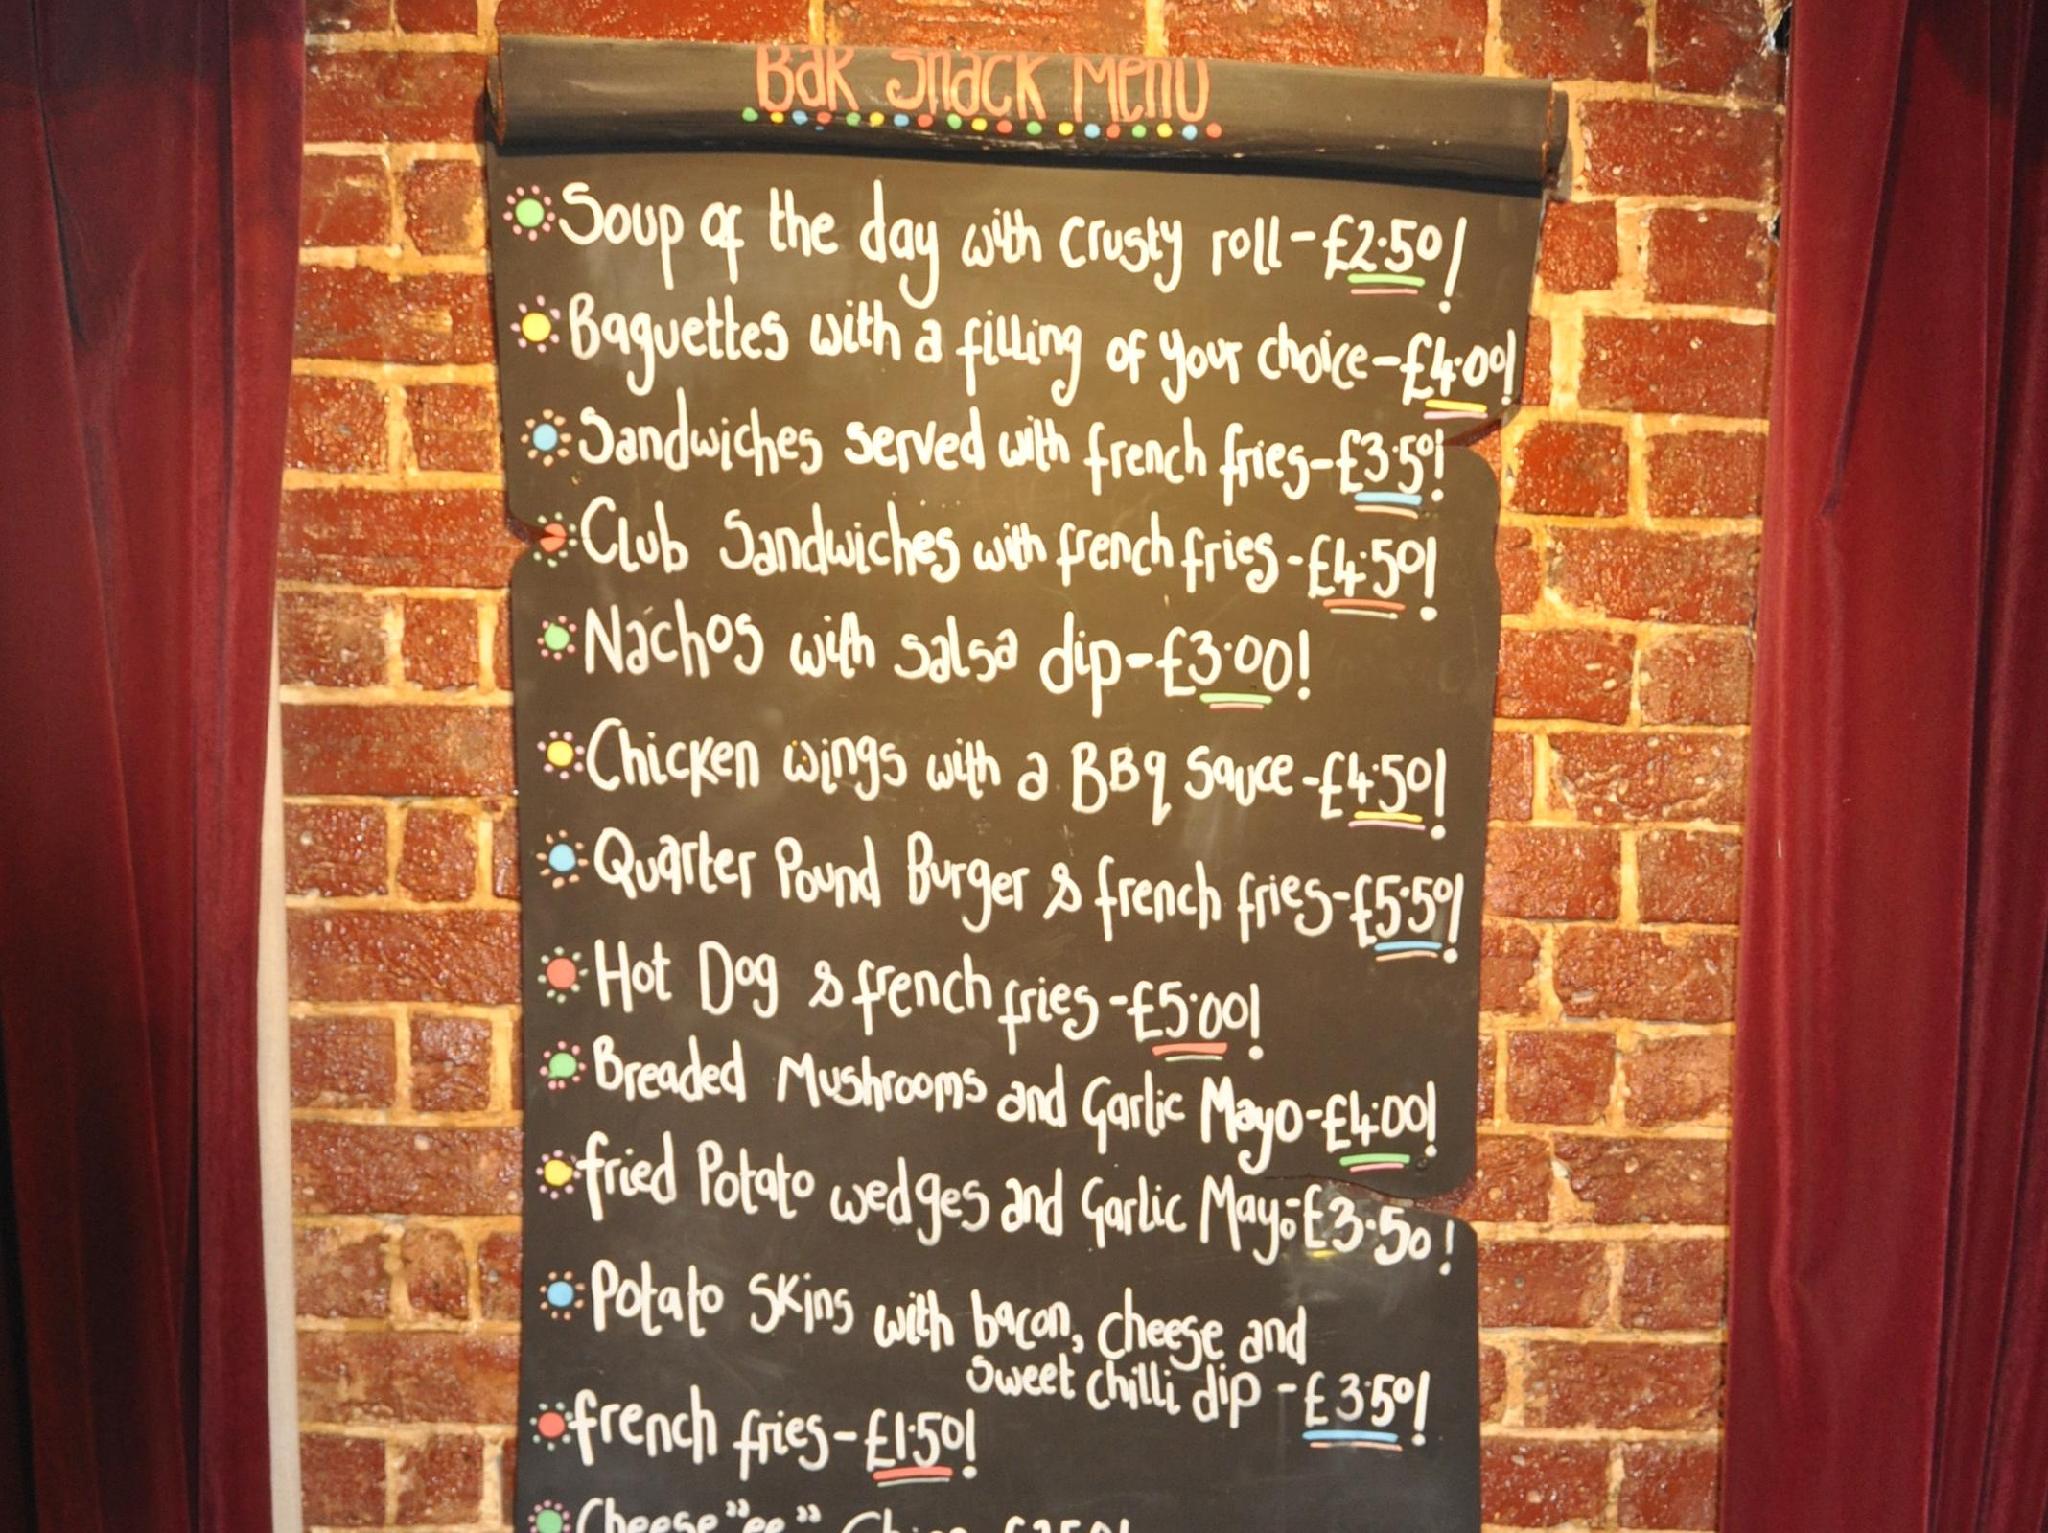 Bar Snack Menu
Soup of the day with crusty roll - £2.50!
Baguettes with a filling of your choice - £4.00!
Sandwiches served with french fries - £3.50!
Club Sandwiches with french fries - £4.50!
Nachos with salsa dip - £3.00!
Chicken wings with a BBq Sauce - £4.50!
Quarter Pound Burger & french fries - £5.50!
Hot Dog & french fries - £5.00!
Breaded Mushrooms and Garlic Mayo - £4.00!
fried Potato wedges and Garlic Mayo - £3.50!
Potato Skins with bacon, cheese and
sweet chilli dip - £3.50!
french fries - £1.50!
Cheese "ee"